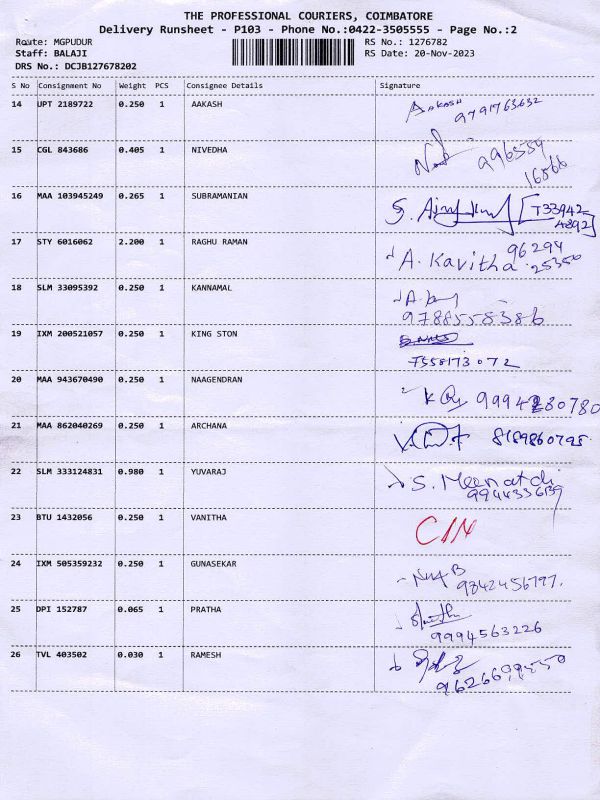 THE PROFESSIONAL COURIERS, COIMBATORE
Delivery Runsheet - P103 - Phone No.:0422-3505555 - Page No.:2
Route: MGPUDUR RS No.: 1276782
Staff: BALAJI RS Date: 20-Nov-2023
DRS No.: DCJB127678202
S No Consignment No Weight PCS Consignee Details Signature
14 UPT 2189722 0.250 1 AAKASH Aakash
9791763632
15 CGL 843686 0.405 1 NIVEDHA 996554
16566
16 MAA 103945249 0.265 1 SUBRAMANIAN [733942
4892]
17 STY 6016062 2.200 1 RAGHU RAMAN A. Kavitha 96294
25350
18 SLM 33095392 0.250 1 KANNAMAL
9788558386
19 IXM 200521057 0.250 1 KING STON
7558173072
20 MAA 943670490 0.250 1 NAAGENDRAN 9994280780
21 MAA 862040269 0.250 1 ARCHANA 8189860798
22 SLM 333124831 0.980 1 YUVARAJ S. Meenatchi
23 BTU 1432056 0.250 1 VANITHA
24 IXM 505359232 0.250 1 GUNASEKAR
9842456797.
25 DPI 152787 0.065 1 PRATHA
9994563226
26 TVL 403502 0.030 1 RAMESH